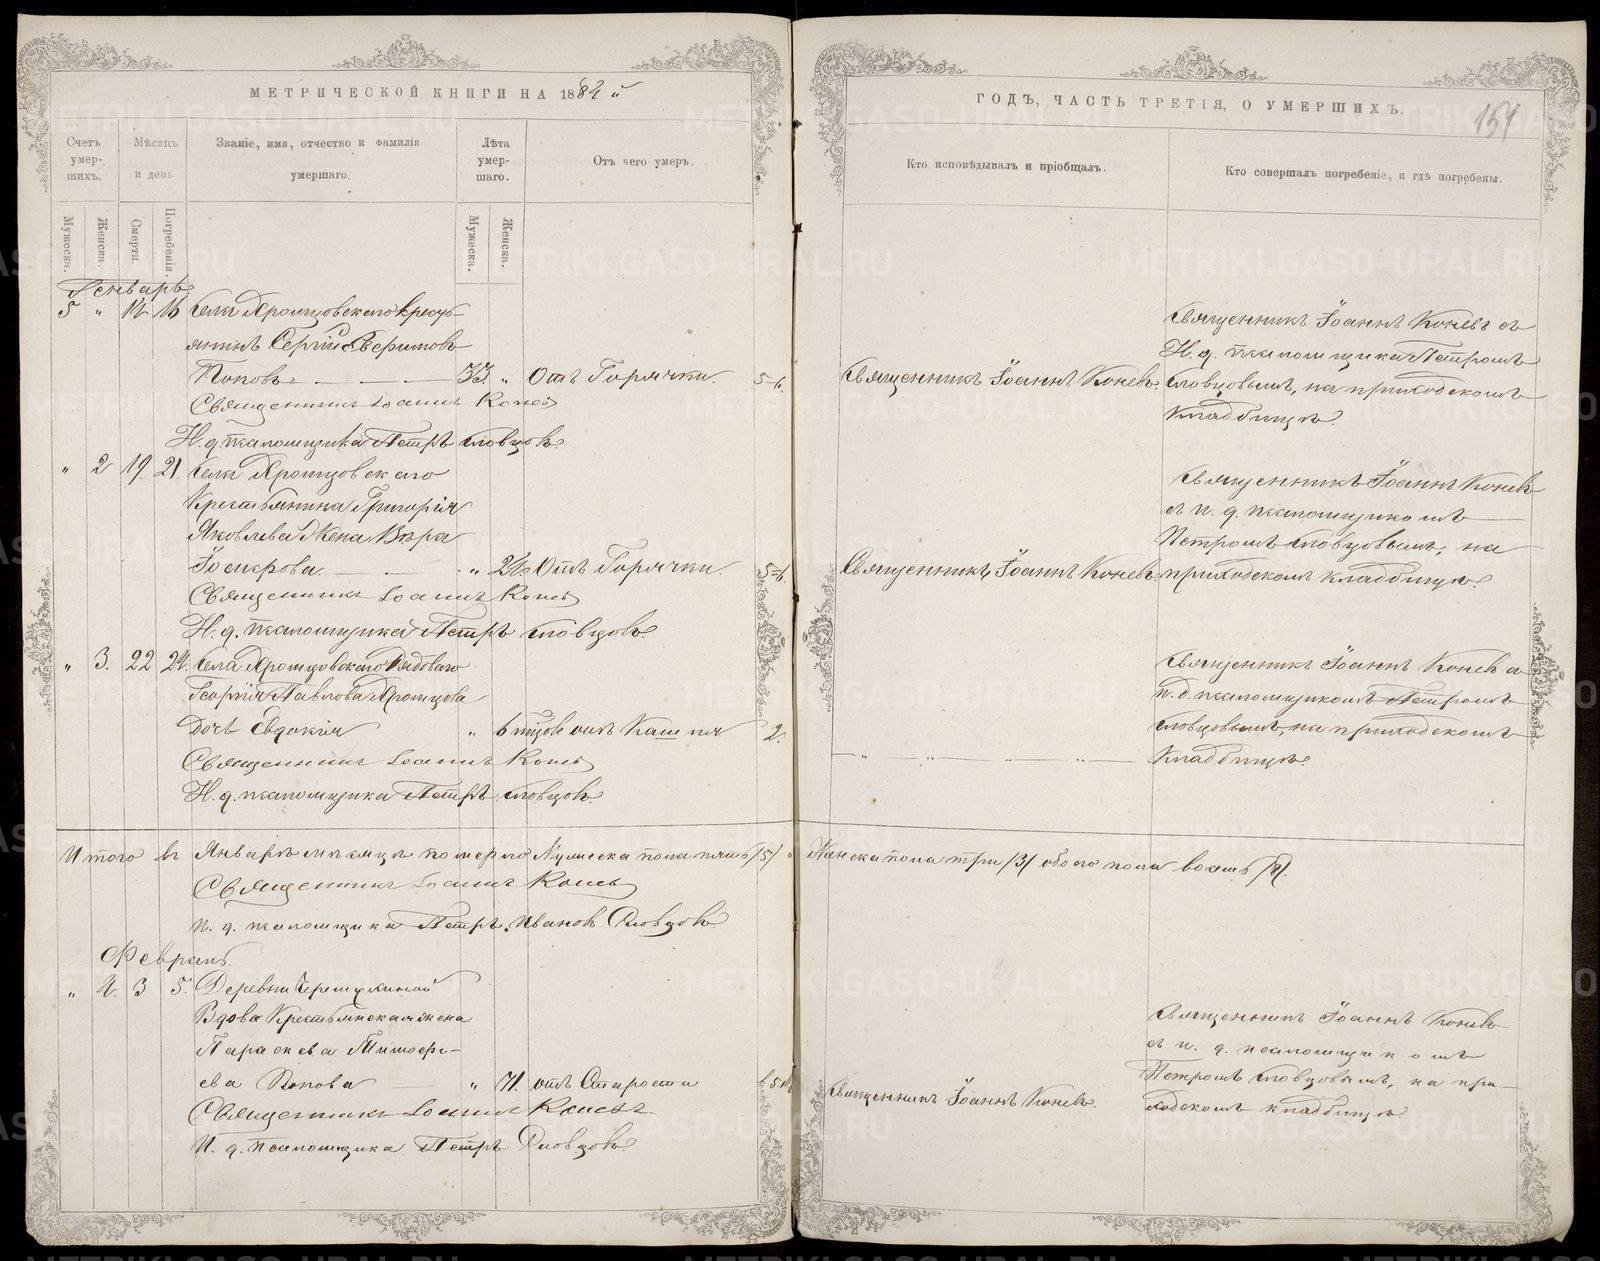 МЕТРИЧЕСКОЙ КНИГИ НА 1884 й
Счетъ умер-шихъ.
Мѣсяцъ и день
Званіе, имя, отчество и фамилія умершаго.
Лѣта умер-шаго.
Отъ чего умеръ.
Мужеска.
Женска.
Смерти.
Погребенія.
Мужеска.
Женска.
Генварь.
5 " 14 16 Села
Кресть-
янинъ Сергій
Поповъ 33. " Отъ Горячки.
Священникъ Іоаннъ Коневъ
И. д. псаломщика Петръ Словцовъ.
" 2 19. 21. Села
Крестьянина Григорія
Яковлева Жена Вѣра
" 24. Отъ Горячки.
Священникъ Іоаннъ Коневъ
И. д. псаломщика Петръ Словцовъ.
" 3. 22 24. Села
Георгія Павлова
дочь Евдокія " отъ Кашля 2.
Священникъ Іоаннъ Коневъ
И. д. псаломщика Петръ Словцовъ.
Итого въ Январѣ мѣсяцѣ померло Мужеска пола пять /5/
Священникъ Іоаннъ Коневъ
И. д. псаломщика Петръ Ивановъ Словцовъ
Февраль.
" 4. 3 5. Деревни
Вдова Крестьянская жена
Параскева Тимофе-
ева Попова " 71. отъ Старости
Священникъ Іоаннъ Коневъ
И. д. псаломщика Петръ Словцовъ.
ГОДЪ, ЧАСТЬ ТРЕТІЯ, О УМЕРШИХЪ.
154
Кто исповѣдывалъ и пріобщалъ.
Кто совершалъ погребеніе, и гдѣ погребены.
Священникъ Іоаннъ Коневъ съ
И. д. псаломщика Петромъ
Священникъ Іоаннъ Коневъ. Словцовымъ, на приходскомъ
кладбищѣ.
Священникъ Іоаннъ Коневъ
съ и. д. псаломщикомъ
Петромъ Словцовымъ, на
Священникъ Іоаннъ Коневъ. приходскомъ кладбищѣ.
Священникъ Іоаннъ Коневъ съ
и. д. псаломщикомъ Петромъ
Словцовымъ, на приходскомъ
" " " " кладбищѣ.
Женска пола три /3/ обоего пола восемь /8/.
Священникъ Іоаннъ Коневъ
съ и. д. псаломщикомъ
Петромъ Словцовымъ, на при-
Священникъ Іоаннъ Коневъ. ходскомъ кладбищѣ
METRIKI.GASO-URAL.RU